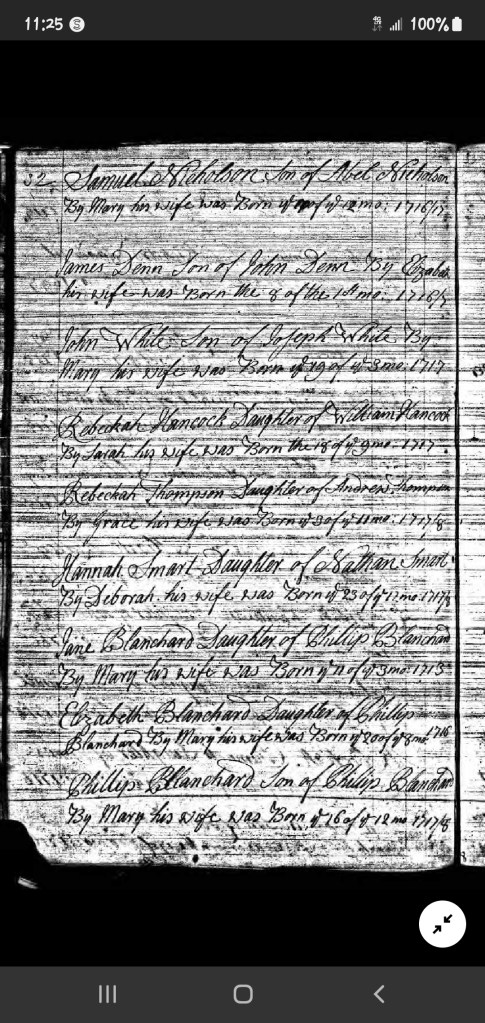 11:25 S 100%
32 Samuel Nicholson Son of Abel Nicholson
By Mary his wife was Born ye of ye 12 mo: 1716/17
James Denn Son of John Denn By Elizabe
his wife was Born the 8 of the 1st mo. 1716/7
John White Son of Joseph White By
Mary his wife was Born ye 19 of ye 3 mo: 1717
Rebeckah Hancock Daughter of William Hancock
By Sarah his wife was Born the 18 of ye 9 mo - 1717
Rebeckah Thompson Daughter of Andrew Thompson
By Grace his wife was Born ye 3 of ye 11 mo: 1717/8
Hannah Smart Daughter of Nathan Smart
By Deborah his wife was Born ye 23 of ye 12 mo: 1717/8
Jane Blanchard Daughter of Phillip Blanchard
By Mary his wife was Born ye 11 of ye 3 mo: 1713
Elzabeth Blanchard Daughter of Phillip
Blanchard By Mary his wife was Born ye 20 of ye 8 mo 1716
Phillip Blanchard Son of Philip Blanchard
By Mary his wife was Born ye 16 of ye 12 mo 1717/8